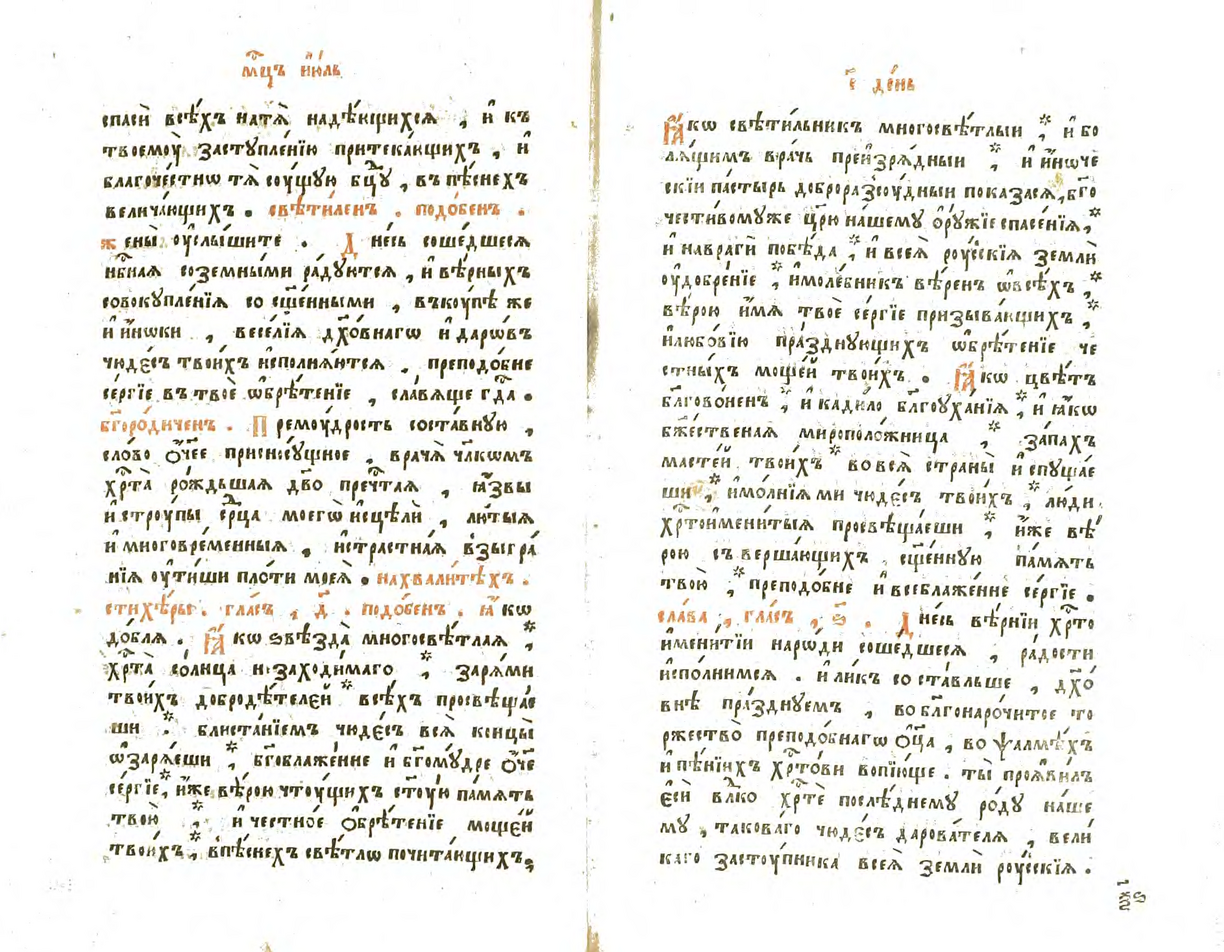 мц҃ъ і҆ю́ль
спасѝ всѣ́хъ натѧ̀ надѣ́ющихсѧ , и҆ къ
твоемꙋ̀ застꙋпле́нїю притека́ющихъ , и҆
благоче́стнѡ тѧ̀ сꙋ́щꙋю бцⷣꙋ , въпѣ́снехъ
велича́ющихъ . свѣти́ленъ . подо́бенъ .
жены̀ ᲂу҆слы́шите . Дне́сь соше́дшесѧ
нбⷭ҇наѧ созе́мными ра́дꙋютсѧ , и҆вѣ́рныхъ
совокꙋпле́нїѧ со сщ҃е́нными , въкꙋ́пѣ же
и҆ и҆́нѡки , весе́лїѧ дх҃о́внагѡ и҆ даро́въ
чюде́съ твои́хъ и҆сполнѧ́ютсѧ . преподо́бне
се́ргїе въ твоѐ ѡ҆брѣ́тенїе , сла́вѧще гд҇а .
бг҃оро́диченъ . Премꙋ́дрость соста́внꙋю ,
сло́во ѻ҆́ч҃ее присносꙋ́щное , врача̀ чл҃комъ
хрⷭ҇та̀ ро́ждьшаѧ дв҃о пречⷭ҇таѧ , ꙗ҆́звы
и҆ стрꙋ́пы срⷣца моегѡ̀ и҆сцѣлѝ , лю́тыѧ
и҆ многовре́менныѧ , и҆стра́стнаѧ взыгра́
нїѧ ᲂу҆тиши пло́ти моеѧ̀ . на хвали́тѣхъ .
стихѣ́ры . гла́съ , д҃ . подо́бенъ . ꙗ҆́кѡ
до́блѧ . Ꙗ҆́кѡ ѕвѣзда̀ многосвѣ́тлаѧ *
хрⷭ҇та̀ со́лнца незаходи́маго , * зарѧ́ми
твои́хъ добродѣ́телей * всѣ́хъ просвѣща́е
ши . * блиста́нїемъ чюде́съ всѧ̀ концы̀
ѡ҆зарѧ́еши , * бг҃облаже́нне и҆ бг҃омꙋ́дре ѻ҆́ч҃е
се́ргїе , * и҆́же вѣ́рою чтꙋ́щихъ ст҃ꙋ́ю па́мѧть
твою̀ , * и҆ честно́е ѻ҆брѣ́тенїе моще́й
твои́хъ , * впѣ́снехъ свѣ́тлѡ почита́ющихъ ,
е҃ де́нь
Ꙗ҆́кѡ свѣти́льникъ многосвѣ́тлыи , * и҆ бо
лѧ́щимъ вра́чь преизрѧ́дныи , * и҆ и҆́ноче
скїи па́стырь доброразсꙋ́дныи показа́сѧ , бл҃го
чести́вомꙋже цр҃ю̀ на́шемꙋ ѻ҆рꙋ́жїе спасе́нїѧ , *
и҆ наврагѝ побѣ́да , * и҆ всеѧ̀ рꙋ́сскїѧ землѝ
ᲂу҆добре́нїе , * и҆моле́бникъ вѣ́ренъ ѡ҆всѣ́хъ , *
вѣ́рою и҆́мѧ твоѐ се́ргїе призыва́ющихъ , *
и҆любо́вїю пра́зднꙋющихъ ѡ҆брѣ́тенїе че
стны́хъ моще́й твои́хъ . Ꙗ҆́кѡ цвѣ́тъ
бл҃гово́ненъ , * и҆ кади́ло бл҃гоꙋха́нїѧ , * и҆ ꙗ҆́кѡ
бж҃е́ственаѧ мироположница , * за́пахъ
масте́й твои́хъ * во всѧ̀ страны̀ и҆спꙋща́е
ши , * и҆мо́лнїѧми чюде́съ твои́хъ , * лю́ди
хрⷭ҇тоимени́тыѧ просвѣща́еши , * и҆́же вѣ́
рою съверша́ющихъ , сщ҃е́ннꙋю па́мѧть
твою̀ , * преподо́бне и҆ всеблаже́нне се́ргїе .
сла́ва , гла́съ , ѕ҃ . Дне́сь вѣ́рнїи хрⷭ҇то
имени́тїи наро́ди соше́дшесѧ , ра́дости
и҆спо́лнимсѧ . и҆ ли́къ соста́вльше , дх҃о́
внѣ пра́зднꙋемъ , во бл҃гонаро́читое то
ржество̀ преподо́бнагѡ ѻ҆ц҃а̀ , во ѱалмѣ́хъ
и҆ пѣ́нїихъ хрⷭ҇то́ви вопїю́ще . ты̀ проѧви́лъ
є҆сѝ влⷣко хрⷭ҇тѐ послѣ́днемꙋ ро́дꙋ на́ше
мꙋ , такова́го чюде́съ дарова́телѧ , вели́
каго застꙋ́пника всеѧ̀ землѝ рꙋ́сскїѧ .